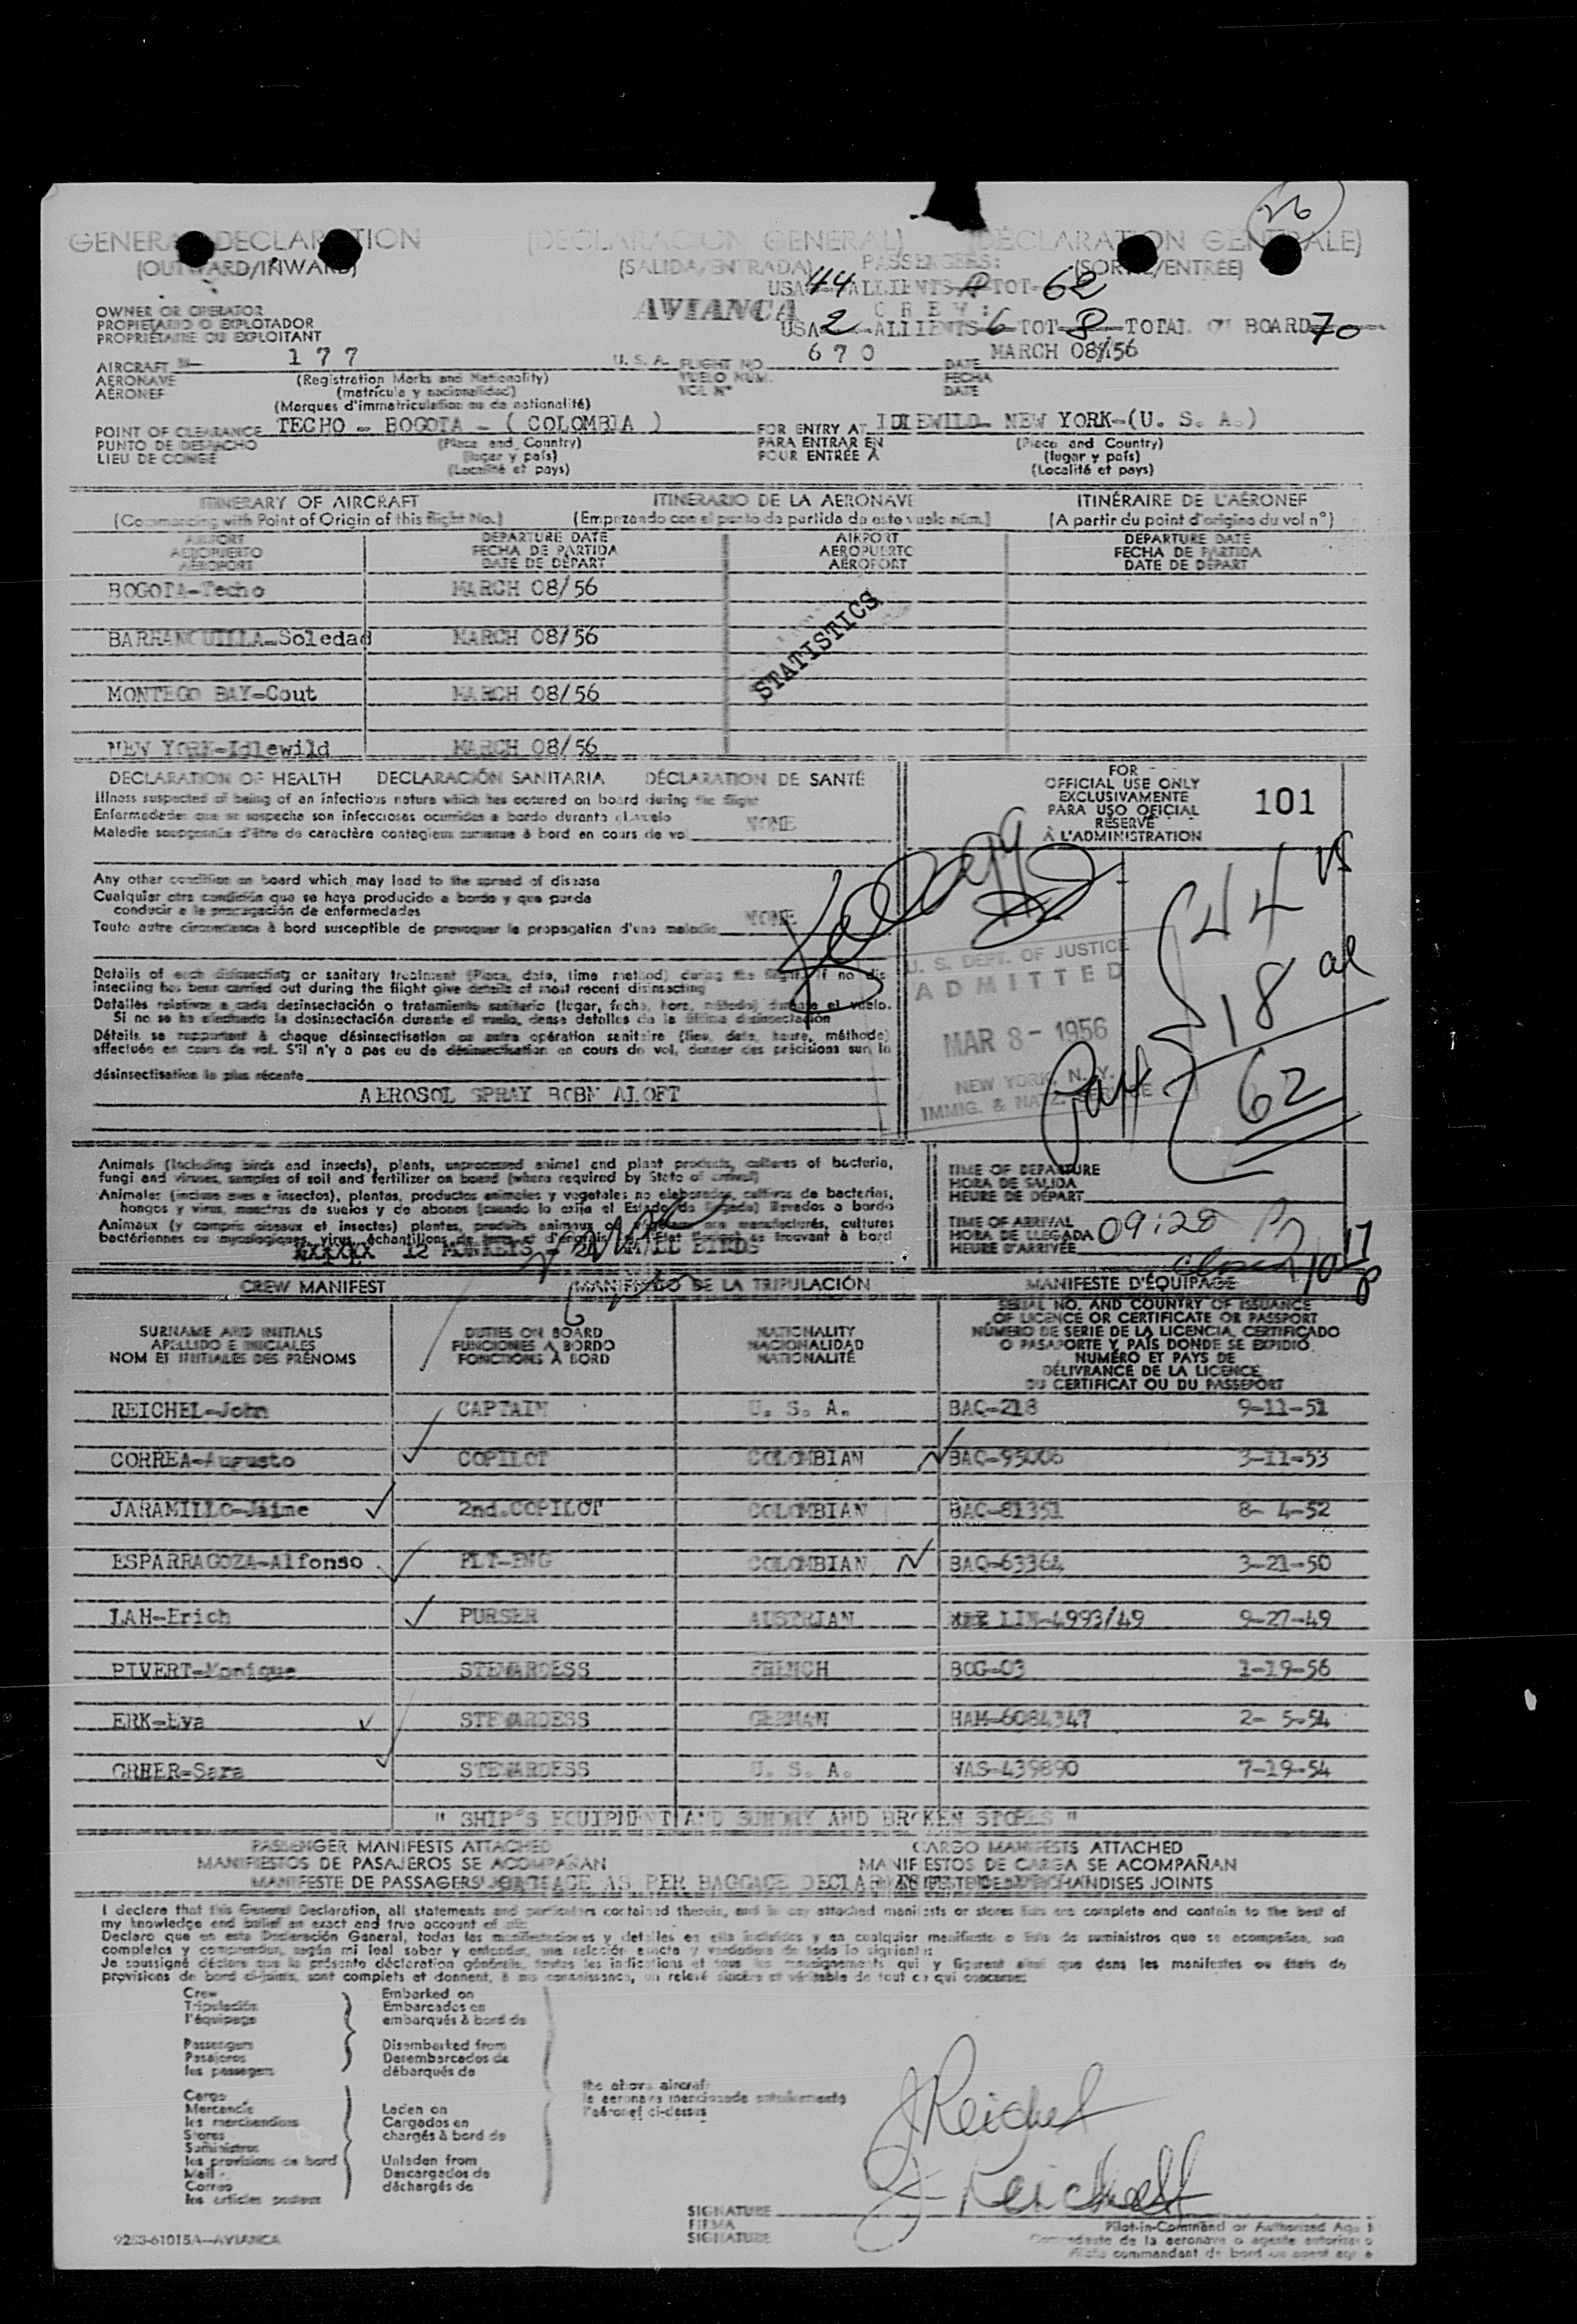 26
GENERAL DECLARATION (DECLARACION GENERAL) (DÉCLARATION GENERALE)
(OUTWARD/INWARD) (SALIDA/ENTRADA) PASSENGERS: (SORTIE/ENTRÉE)
USA 44 ALLIENTS TOT 62
OWNER OR OPERATOR AVIANCA CREW:
PROPIETARIO O EXPLOTADOR USA 2 ALLIENTS 6 TOT 8 TOTAL ON BOARD 70
PROPRIÉTAIRE OU EXPLOITANT
AIRCRAFT 177 U. S. A. FLIGHT NO. 670 DATE MARCH 08/56
AERONAVE (Registration Marks and Nationality) VUELO NUM. FECHA
AÉRONEF (matrícula y nacionalidad) VOL Nº DATE
(Marques d'immatriculation ou de nationalité)
POINT OF CLEARANCE TECHO - BOGOTA - ( COLOMBIA ) FOR ENTRY AT IDLEWILD- NEW YORK-(U. S. A.)
PUNTO DE DESPACHO (Place and Country) PARA ENTRAR EN (Place and Country)
LIEU DE CONGÉ (lugar y país) POUR ENTRÉE À (lugar y país)
(Localité et pays) (Localité et pays)
ITINERARY OF AIRCRAFT ITINERARIO DE LA AERONAVE ITINÉRAIRE DE L'AÉRONEF
(Commencing with Point of Origin of this flight No.) (Empezando con el punto de partida de este vuelo núm.) (A partir du point d'origine du vol nº)
AIRPORT DEPARTURE DATE AIRPORT DEPARTURE DATE
AEROPUERTO FECHA DE PARTIDA AEROPUERTO FECHA DE PARTIDA
AÉROPORT DATE DE DÉPART AÉROPORT DATE DE DÉPART
BOGOTA-Techo MARCH 08/56
STATISTICS
BARRANQUILLA-Soledad MARCH 08/56
MONTEGO BAY-Cout MARCH 08/56
NEW YORK-Idlewild MARCH 08/56
DECLARATION OF HEALTH DECLARACIÓN SANITARIA DÉCLARATION DE SANTÉ
FOR
OFFICIAL USE ONLY
EXCLUSIVAMENTE
PARA USO OFICIAL
RÉSERVÉ
À L'ADMINISTRATION
101
Illness suspected of being of an infectious nature which has occured on board during the flight
Enfermedades que se sospecha son infecciosas ocurridas a bordo durante el vuelo
Maladie soupçonnée d'être de caractère contagieux survenue à bord en cours de vol NONE
Any other condition on board which may lead to the spread of disease
Cualquier otra condición que se haya producido a bordo y que pueda
conducir a la propagación de enfermedades
Toute autre circonstance à bord susceptible de provoquer la propagation d'une maladie NONE
44 US
18 al
62
U. S. DEPT. OF JUSTICE
ADMITTED
MAR 8 - 1956
NEW YORK, N. Y.
IMMIG. & NATZ. SERVICE
Details of each disinsecting or sanitary treatment (Place, date, time method) during the flight. If no dis-
insecting has been carried out during the flight give details of most recent disinsecting
Detalles relativos a cada desinsectación o tratamiento sanitario (lugar, fecha, hora, método) durante el vuelo.
Si no se ha efectuado la desinsectación durante el vuelo, dense detalles de la última desinsectación
Détails se rapportant à chaque désinsectisation ou autre opération sanitaire (lieu, date, heure, méthode)
effectuée en cours de vol. S'il n'y a pas eu de désinsectisation en cours de vol, donner des précisions sur la
désinsectisation la plus récente
AEROSOL SPRAY BOBN ALOFT
Animals (including birds and insects), plants, unprocessed animal and plant products, cultures of bacteria,
fungi and viruses, samples of soil and fertilizer on board (where required by State of arrival)
Animales (incluso aves e insectos), plantas, productos animales y vegetales no elaborados, cultivos de bacterias,
hongos y virus, muestras de suelos y de abonos (cuando lo exija el Estado de llegada) llevados a bordo
Animaux (y compris oiseaux et insectes) plantes, produits animaux ou végétaux non manufacturés, cultures
bactériennes ou mycologiques, virus, échantillons de terre et d'engrais se trouvant à bord
XXXXXX 12 MONKEYS - SMALL BIRDS
TIME OF DEPARTURE
HORA DE SALIDA
HEURE DE DÉPART
TIME OF ARRIVAL
HORA DE LLEGADA 09:20 P
HEURE D'ARRIVÉE
CREW MANIFEST (MANIFIESTO DE LA TRIPULACIÓN MANIFESTE D'ÉQUIPAGE
SURNAME AND INITIALS DUTIES ON BOARD NATIONALITY SERIAL NO. AND COUNTRY OF ISSUANCE
APELLIDO E INICIALES FUNCIONES A BORDO NACIONALIDAD OF LICENCE OR CERTIFICATE OR PASSPORT
NOM ET INITIALES DES PRÉNOMS FONCTIONS À BORD NATIONALITÉ NÚMERO DE SERIE DE LA LICENCIA, CERTIFICADO
O PASAPORTE Y PAÍS DONDE SE EXPIDIÓ
NUMÉRO ET PAYS DE
DÉLIVRANCE DE LA LICENCE,
DU CERTIFICAT OU DU PASSEPORT
REICHEL-John CAPTAIN U. S. A. BAQ-218 9-11-51
CORREA-Augusto COPILOT COLOMBIAN BAQ-95006 3-11-53
JARAMILLO-Jaime 2nd.COPILOT COLOMBIAN BAC-81351 8- 4-52
ESPARRAGOZA-Alfonso FLT-ENG COLOMBIAN BAQ-63364 3-21-50
LAH-Erich PURSER AUSTRIAN LIN-4993/49 9-27-49
PIVERT-Monique STEWARDESS FRENCH BOG-03 1-19-56
ERK-Eva STEWARDESS GERMAN HAM-6084347 2- 5-54
GREER-Sara STEWARDESS U. S. A. WAS-439890 7-19-54
" SHIP'S EQUIPMENT AND SUNDRY AND BROKEN STORES "
PASSENGER MANIFESTS ATTACHED CARGO MANIFESTS ATTACHED
MANIFIESTOS DE PASAJEROS SE ACOMPAÑAN MANIFIESTOS DE CARGA SE ACOMPAÑAN
MANIFESTE DE PASSAGERS AS PER BAGGAGE MARCHANDISES JOINTS
I declare that this General Declaration, all statements and particulars contained therein, and in any attached manifests or stores lists are complete and contain to the best of
my knowledge and belief an exact and true account of all:
Declaro que en esta Declaración General, todas las manifestaciones y detalles en ella incluidos y en cualquier manifiesto o lista de suministros que se acompañen, son
completos y comprenden, según mi leal saber y entender, una relación exacta y verdadera de todo lo siguiente:
Je soussigné déclare que la présente déclaration générale, toutes les indications et tous les renseignements qui y figurent ainsi que dans les manifestes ou états de
provisions de bord ci-joints, sont complets et donnent, à ma connaissance, un relevé sincère et véritable de tout ce qui concerne:
Crew Embarked on
Tripulación Embarcados en
l'équipage embarqués à bord de
Passengers Disembarked from
Pasajeros Desembarcados de
les passagers débarqués de
the above aircraft
la aeronave mencionada anteriormente
l'aéronef ci-dessus
Cargo
Mercancía Laden on
les marchandises Cargados en
Stores chargés à bord de
Suministros
les provisions de bord Unladen from
Mail Descargados de
Correo déchargés de
les articles postaux
J Reichel
J Reichel
SIGNATURE
FIRMA Pilot-in-Command or Authorized Agent
SIGNATURE Comandante de la aeronave o agente autorizado
Pilote commandant de bord ou agent
9283-61015A-AVIANCA